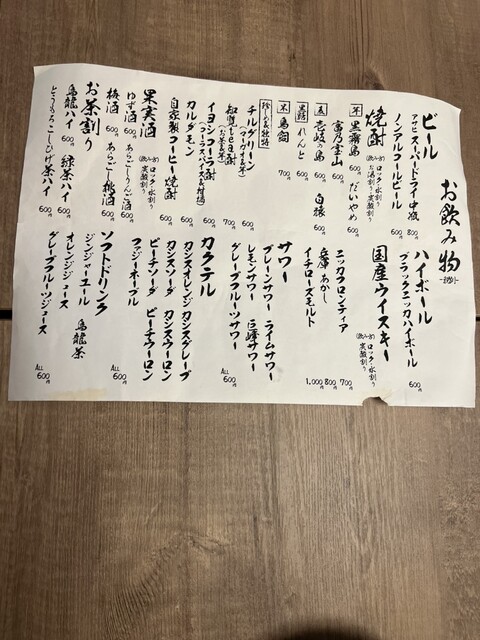 お飲み物
ビール
アサヒスーパードライ中瓶 800円
ノンアルコールビール 600円
焼酎
(飲み方)ロック・水割り
お湯割り・炭酸割り
芋
黒霧島 600円
だいやめ 600円
富乃宝山 600円
麦
壱岐の島 600円
白猿 600円
黒糖
れんと 600円
米
鳥飼 700円
チルグリーン 600円
イヨシコーラ酎 600円
カルダモン 600円
自家製コーヒー焼酎 600円
果実酒
(飲み方)ロック・水割り
炭酸割り
ゆず酒 600円
あらごしりんご酒 600円
梅酒 600円
あらごし桃酒 600円
お茶割り
烏龍ハイ 600円
緑茶ハイ 600円
とうもろこしひげ茶ハイ 600円
ハイボール
ブラックニッカハイボール 600円
国産ウイスキー
(飲み方)ロック・水割り
炭酸割り
ニッカフロンティア 700円
兵庫 あかし 800円
イチローズモルト 1,000円
サワー
プレーンサワー ライムサワー
レモンサワー 巨峰サワー
グレープフルーツサワー ALL 600円
カクテル
カシスオレンジ カシスグレープ
カシスソーダ カシスウーロン
ピーチソーダ ピーチウーロン
ファジーネーブル ALL 600円
ソフトドリンク
ジンジャーエール 烏龍茶
オレンジジュース
グレープフルーツジュース ALL 600円